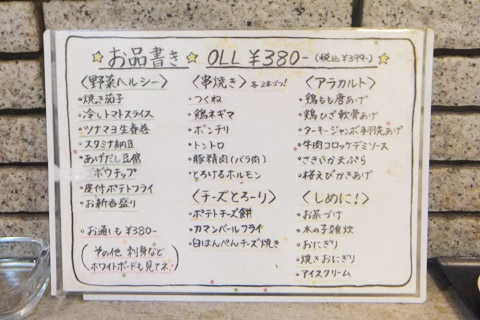 ☆お品書き☆ OLL ¥380-(税込¥399-)☆
〈野菜ヘルシー〉
・焼き茄子
・冷しトマトスライス
・ツナマヨ生春巻
・スタミナ納豆
・あげだし豆腐
ゴボウチップ
・皮付ポテトフライ
・お新香盛り
・お通しも¥380-
(その他 刺身など
ホワイトボードも見てネ!)
〈串焼き〉各2本づつ!
・つくね
・鶏ネギマ
・ボンチリ
・トントロ
・豚精肉(バラ肉)
・とろけるホルモン
〈チーズとろーり〉
・ポテトチーズ餅
・カマンベールフライ
・白はんぺんチーズ焼き
〈アラカルト〉
・鶏もも唐あげ
・鶏ひざ軟骨あげ
・ターキージャンボ手羽先あげ
・牛肉コロッケデミソース
・さきいか天ぷら
・桜えびかきあげ
〈しめに!〉
・お茶づけ
・木の子雑炊
・おにぎり
・焼きおにぎり
・アイスクリーム